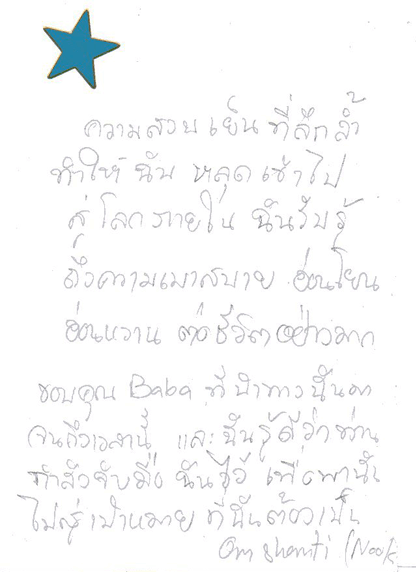 ความสงบเย็น ที่ลึกล้ำ
ทำให้ ฉัน หลุดเข้าไป
สู่ โลกภายใน ฉันรับรู้
ถึงความเบาสบาย อ่อนโยน
อ่อนหวาน ต่อชีวิตอย่างมาก
ขอบคุณ Baba ที่นำทางฉันมา
จนถึงเวลานี้ และ ฉันรู้ดีว่าท่าน
กำลังจับมือ ฉันไว้ เพื่อพาฉัน
ไปสู่เป้าหมาย ที่ฉันต้องเป็น
Om shanti (Nook